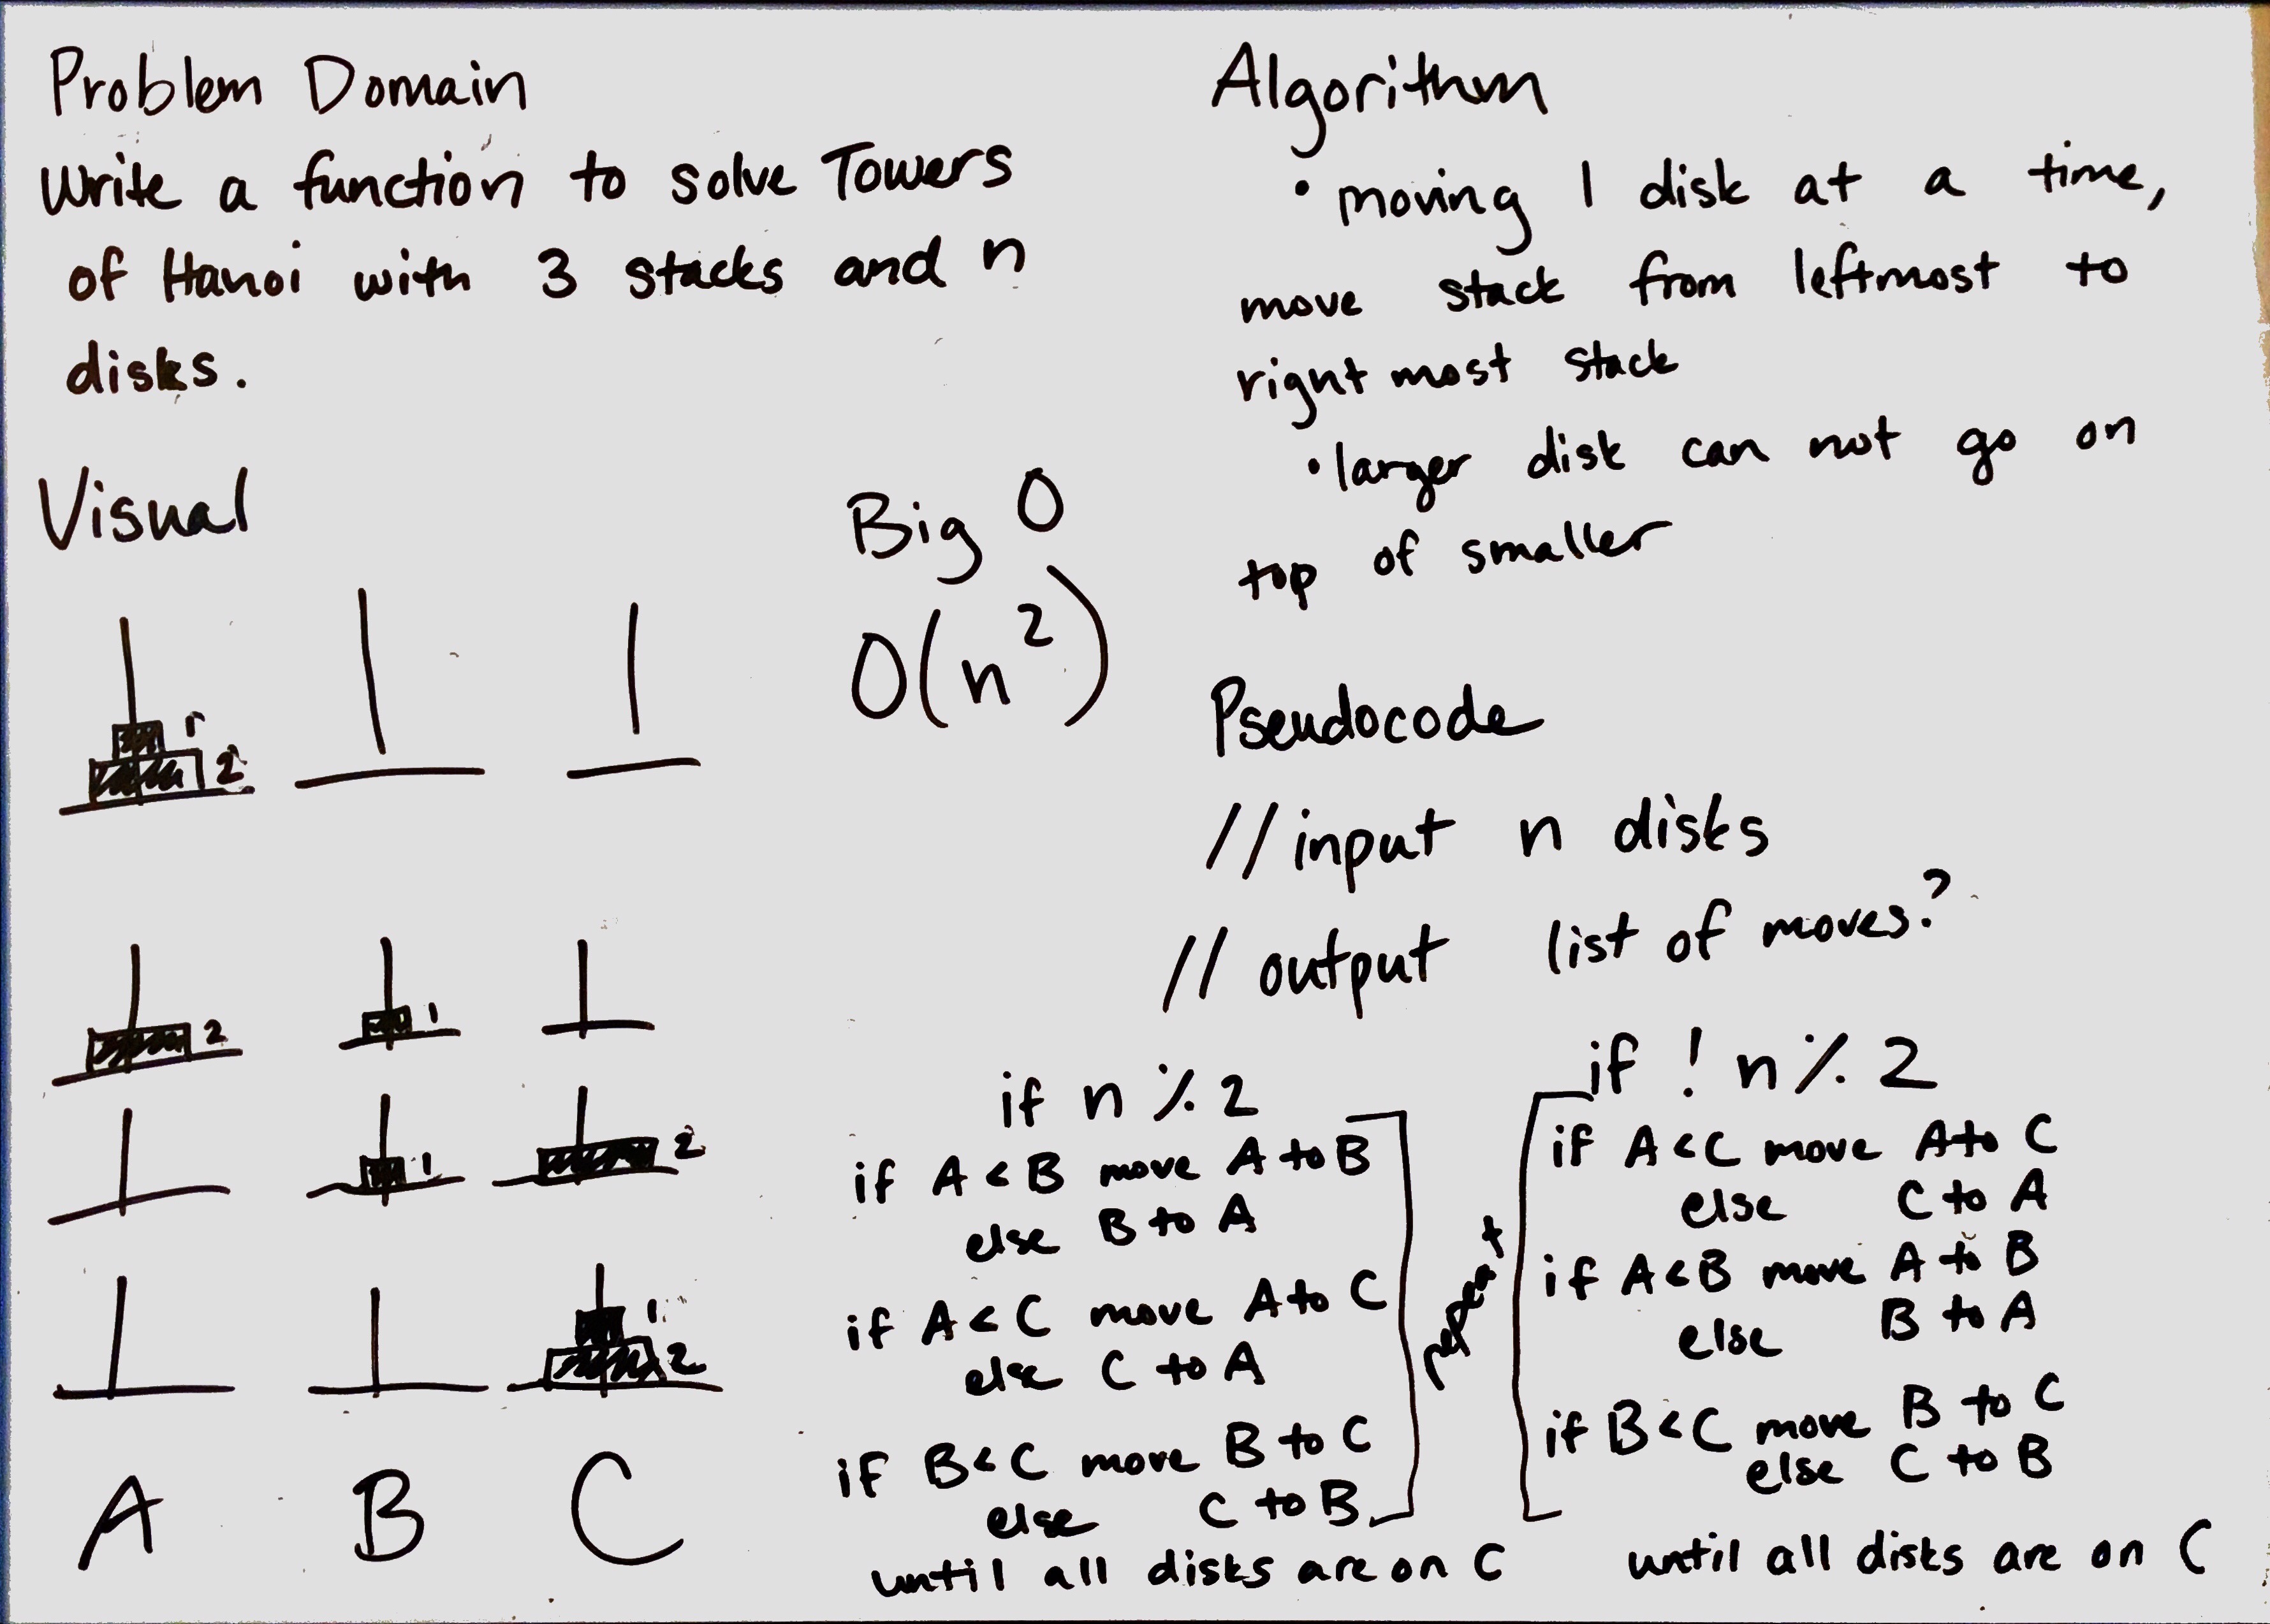 Problem Domain
Write a function to solve Towers
of Hanoi with 3 stacks and n
disks.
Visual
1
2
2
1
1
2
1
2
A B C
Big O
O(n²)
Algorithm
• moving 1 disk at a time,
move stack from leftmost to
right most stack
• larger disk can not go on
top of smaller
Pseudocode
// input n disks
// output list of moves?
if n % 2
if A < B move A to B
else B to A
if A < C move A to C
else C to A
if B < C move B to C
else C to B
until all disks are on C
repeat
if ! n % 2
if A < C move A to C
else C to A
if A < B move A to B
else B to A
if B < C move B to C
else C to B
until all disks are on C